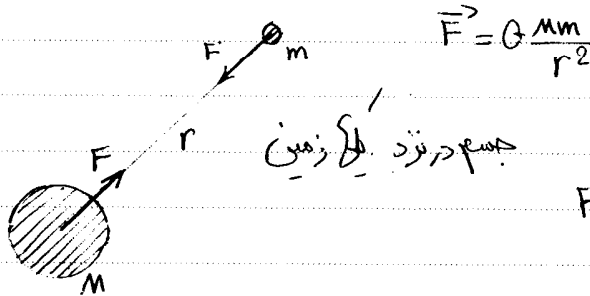 F = G Mm / r²
F
m
r
F
جسم در نزد یکی زمین
F
M